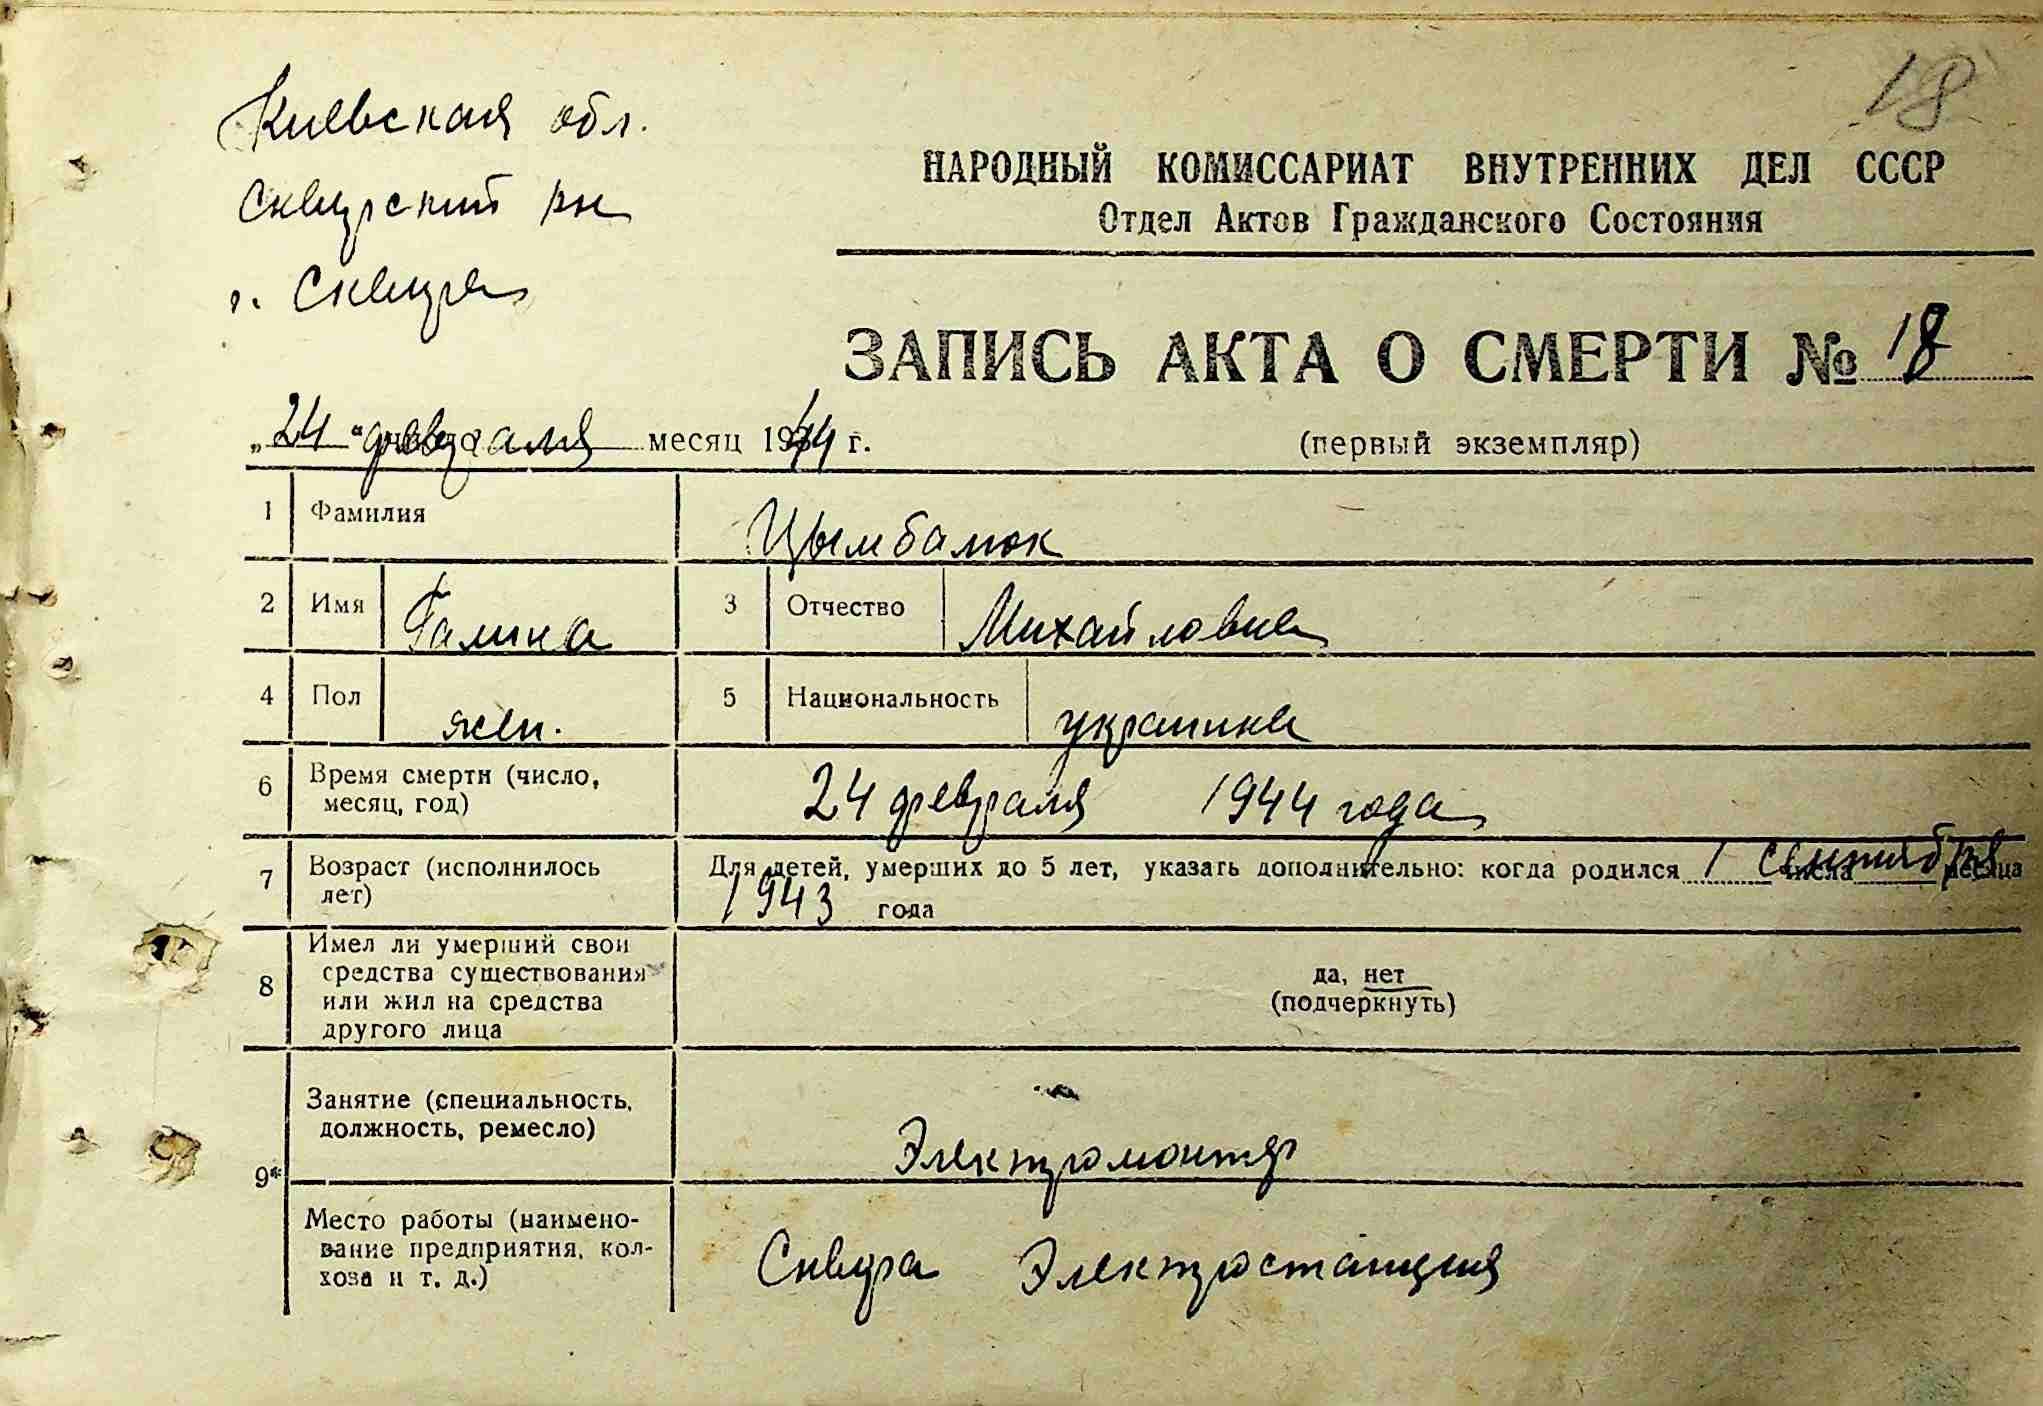 18
Киевская обл.
Сквирский рн
г. Сквира
НАРОДНЫЙ КОМИССАРИАТ ВНУТРЕННИХ ДЕЛ СССР
Отдел Актов Гражданского Состояния
ЗАПИСЬ АКТА О СМЕРТИ № 18
„24“ февраля месяц 1944 г.
(первый экземпляр)
1 Фамилия Цымбалюк
2 Имя Галина 3 Отчество Михайловна
4 Пол жен. 5 Национальность украинка
6 Время смерти (число, 24 февраля 1944 года
месяц, год)
7 Возраст (исполнилось Для детей, умерших до 5 лет, указать дополнительно: когда родился 1 числа сентября месяца
лет) 1943 года
Имел ли умерший свои
средства существования да, нет
8 или жил на средства (подчеркнуть)
другого лица
Занятие (специальность,
должность, ремесло) Электромонтер
9*
Место работы (наимено-
вание предприятия, кол- Сквира Электростанция
хоза и т. д.)